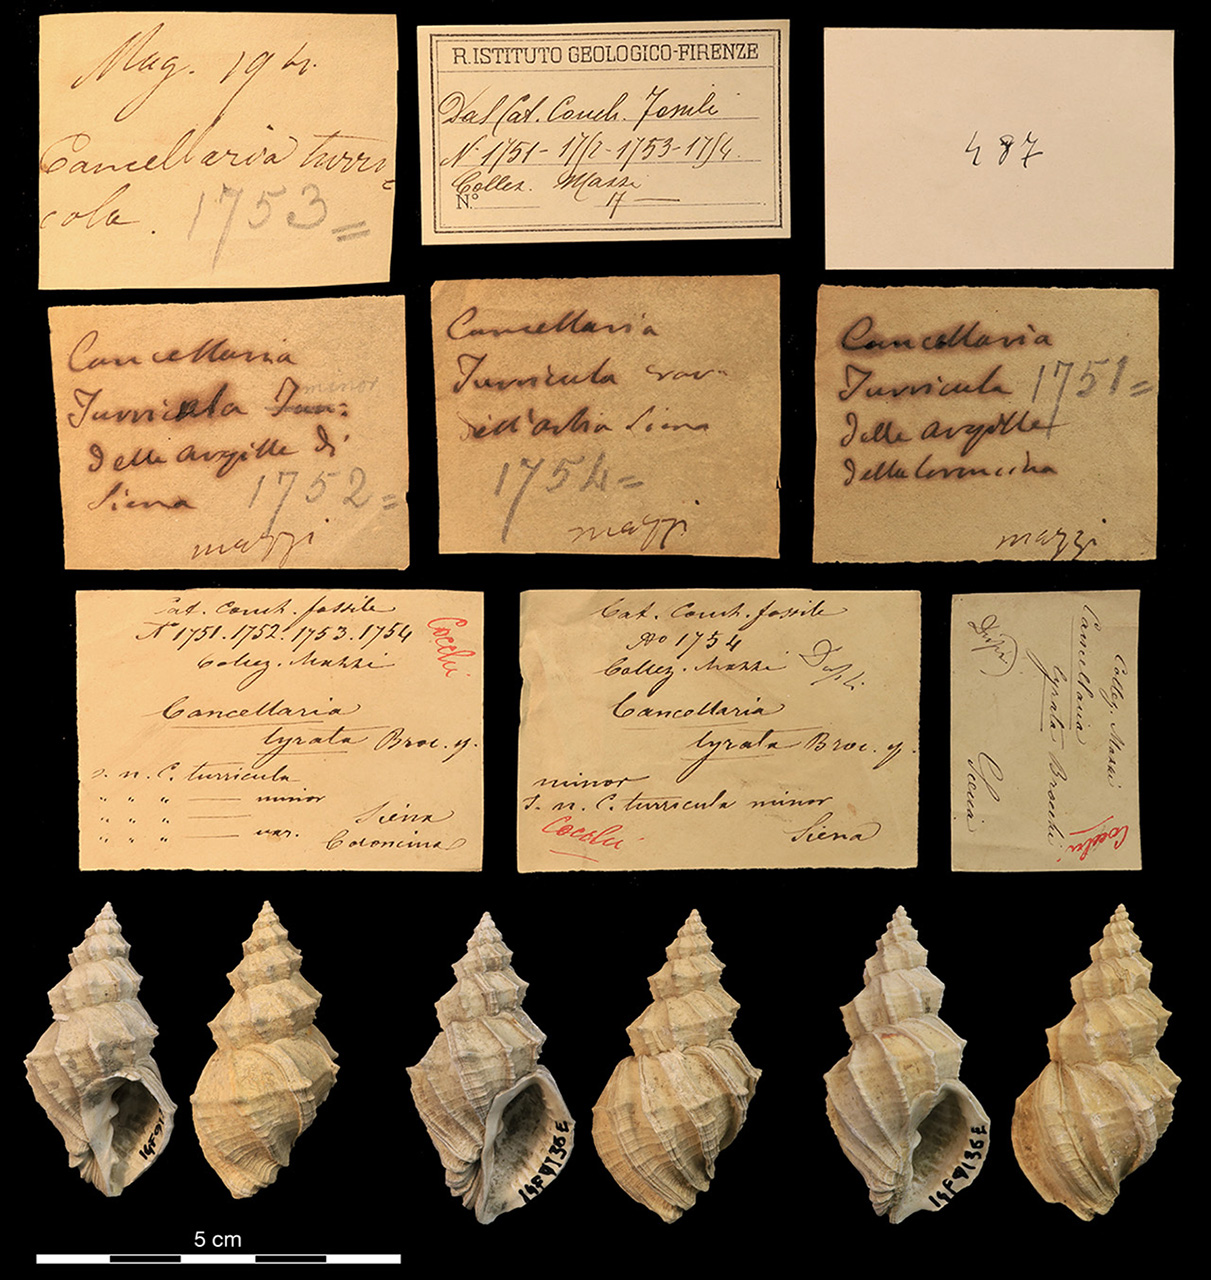 Mag. 19
Cancellaria turri=
cola.
1753=
R. ISTITUTO GEOLOGICO-FIRENZE
Dal Cat. Conch. Fossili
N. 1751-1752-1753-1754.
Collez. Mazzi
N.º 17
487
Cancellaria
Turricula
minor
delle argille di
Siena
1752=
mazzi
Cancellaria
Turricula
dell'arbia Siena
1754=
mazzi
Cancellaria
Turricula 1751=
delle argille
della
mazzi
Cat. Conch. fossile
Nº 1751. 1752. 1753. 1754
Collez. Mazzi
Cocchi
Cancellaria
lyrata Broc. y.
s. n. C. turricula
" " " — minor
" " " — var.
Siena
Coroncina
Cat. Conch. fossile
No 1754
Collez. Mazzi
Cancellaria
lyrata Broc. y.
minor
s. n. C. turricula minor
Cocchi
Siena
Collez. Mazzi
Cancellaria
lyrata Brocchi
Siena
Cocchi
IGF91
IGF9136E
IGF9136E
5 cm